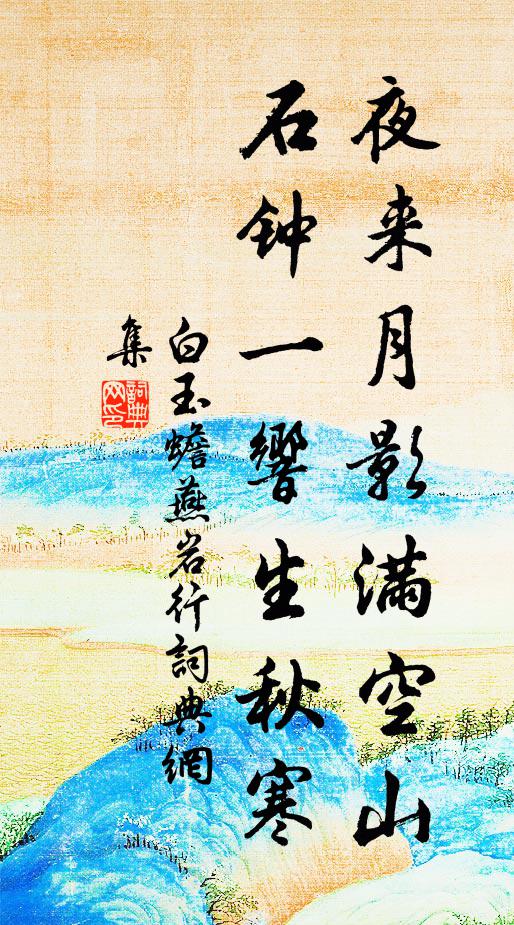 夜来月影满空山
石钟一響生秋寒
白玉蟾燕岩行詞典網
集
詞典
网印